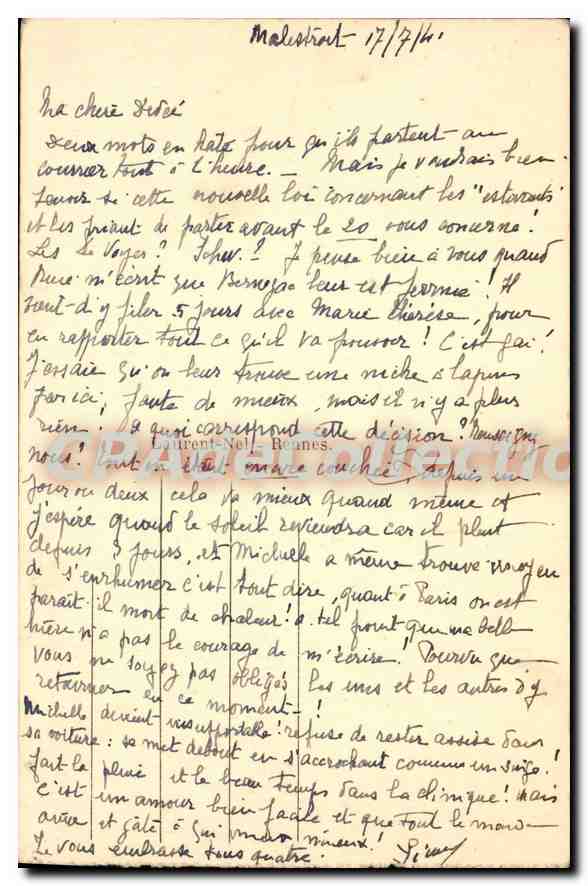 Malestroit 17/7/41
Ma chère Dédée
Deux mots en hâte pour qu'ils partent au
courrier tout à l'heure. _ Mais je voudrais bien
savoir si cette nouvelle loi concernant les "estivants"
et les priant de partir avant le 20 vous concerne!
Les Le Voyer? Je pense bien à vous quand
m'écrit que leur est fermé! Il
vient d'y filer 5 jours avec Marie Thérèse, pour
en rapporter tout ce qu'il va pouvoir! C'est gai!
J'essaie qu'on leur trouve une niche à lapins
par ici, faute de mieux, mais il n'y a plus
rien! à quoi correspond cette décision?
Laurent-Nel - Rennes.
nous! couchée, depuis un
jour ou deux cela va mieux quand même et
j'espère quand le soleil reviendra car il pleut
depuis 3 jours, et Michelle a même trouvé moyen
de s'enrhumer c'est tout dire, quant à Paris on est
paraît-il mort de chaleur! à tel point que ma belle
mère n'a pas le courage de m'écrire! Pourvu que
vous ne soyez pas obligés les uns et les autres d'y
retourner en ce moment!
Michelle devient insupportable! refuse de rester assise dans
sa voiture: se met debout en s'accrochant comme un singe!
fait la pluie et le beau temps dans la clinique! mais
c'est un amour bien facile et que tout le monde
aime et gâte à qui mieux mieux!
Je vous embrasse tous quatre.